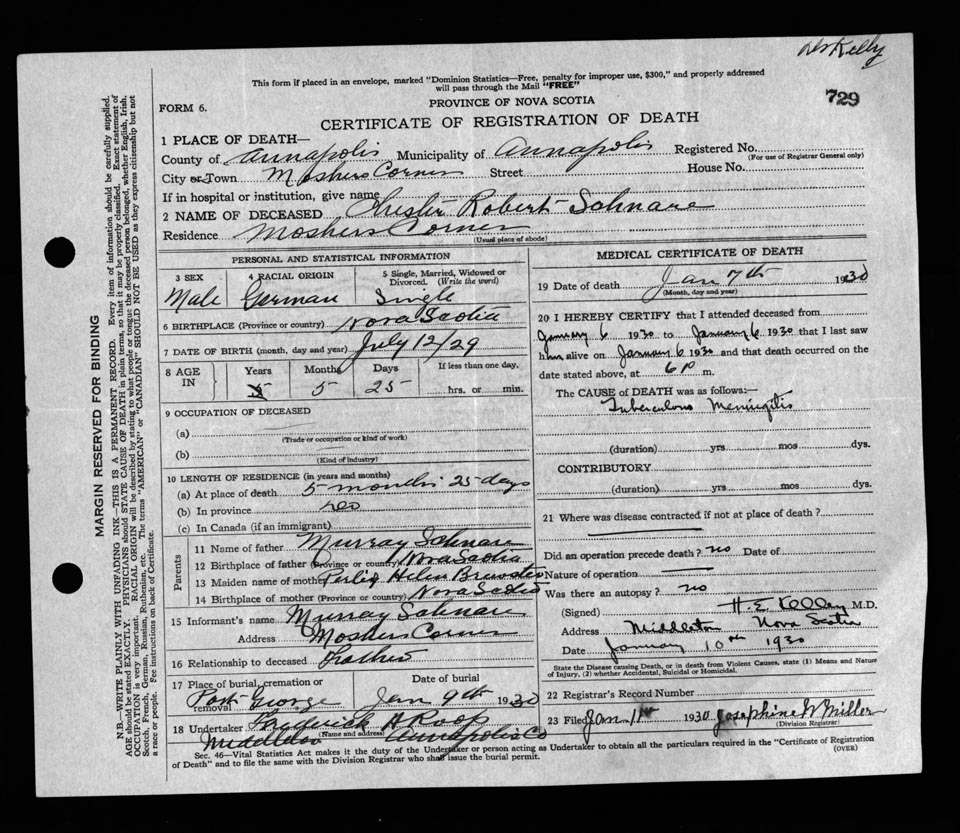 Dr Kelly
This form if placed in an envelope, marked "Dominion Statistics—Free, penalty for improper use, $300," and properly addressed
will pass through the Mail "FREE"
729
FORM 6.
PROVINCE OF NOVA SCOTIA
CERTIFICATE OF REGISTRATION OF DEATH
1 PLACE OF DEATH—
County of Annapolis Municipality of Annapolis Registered No.
(For use of Registrar General only)
City or Town Moshers Corner Street House No.
If in hospital or institution, give name
2 NAME OF DECEASED Chester Robert Schnare
Residence Moshers Corner
(Usual place of abode)
PERSONAL AND STATISTICAL INFORMATION
3 SEX 4 RACIAL ORIGIN 5 Single, Married, Widowed or Divorced. (Write the word)
Male German Single
6 BIRTHPLACE (Province or country) Nova Scotia
7 DATE OF BIRTH (month, day and year) July 12/29
8 AGE IN Years Months Days If less than one day,
5 5 25 hrs. or min.
9 OCCUPATION OF DECEASED
(a)
(Trade or occupation or kind of work)
(b)
(Kind of industry)
10 LENGTH OF RESIDENCE (in years and months)
(a) At place of death 5 months 25 days
(b) In province
(c) In Canada (if an immigrant)
Parents
11 Name of father Murray Schnare
12 Birthplace of father (Province or country) Nova Scotia
13 Maiden name of mother Helen
14 Birthplace of mother (Province or country) Nova Scotia
15 Informant's name Murray Schnare
Address Moshers Corner
16 Relationship to deceased Father
17 Place of burial, cremation or removal Date of burial
Port George Jan 9th 1930
18 Undertaker Frederick H Roop
(Name and address)
Middleton Annapolis Co
MEDICAL CERTIFICATE OF DEATH
19 Date of death Jan 7th 1930
(Month, day and year)
20 I HEREBY CERTIFY that I attended deceased from
January 6 1930 to January 6 1930 that I last saw
him alive on January 6 1930 and that death occurred on the
date stated above, at 6 P m.
The CAUSE of DEATH was as follows:—
Tuberculous Meningitis
(duration) yrs mos dys.
CONTRIBUTORY
(duration) yrs mos dys.
21 Where was disease contracted if not at place of death?
Did an operation precede death? no Date of
Nature of operation
Was there an autopsy? no
(Signed) H. E. Kelley M.D.
Address Middleton Nova Scotia
Date January 10th 1930
State the Disease causing Death, or in death from Violent Causes, state (1) Means and Nature
of Injury, (2) whether Accidental, Suicidal or Homicidal.
22 Registrar's Record Number
23 Filed Jan 11 1930 Josephine W Miller
(Division Registrar)
Sec. 46—Vital Statistics Act makes it the duty of the Undertaker or person acting as Undertaker to obtain all the particulars required in the "Certificate of Registration
of Death" and to file the same with the Division Registrar who shall issue the burial permit.
(OVER)
MARGIN RESERVED FOR BINDING
N.B.—WRITE PLAINLY WITH UNFADING INK—THIS IS A PERMANENT RECORD. Every item of information should be carefully supplied.
AGE should be stated EXACTLY. PHYSICIANS should STATE CAUSE OF DEATH in plain terms, so that it may be properly classified. Exact statement of
OCCUPATION is very important. RACIAL ORIGIN will be described by stating to what people or tongue the deceased person belonged, whether English, Irish,
Scotch, French, German, Russian, Ruthenian, etc. The terms "AMERICAN" or "CANADIAN" SHOULD NOT BE USED as they express citizenship but not
a race or people. See instructions on back of Certificate.